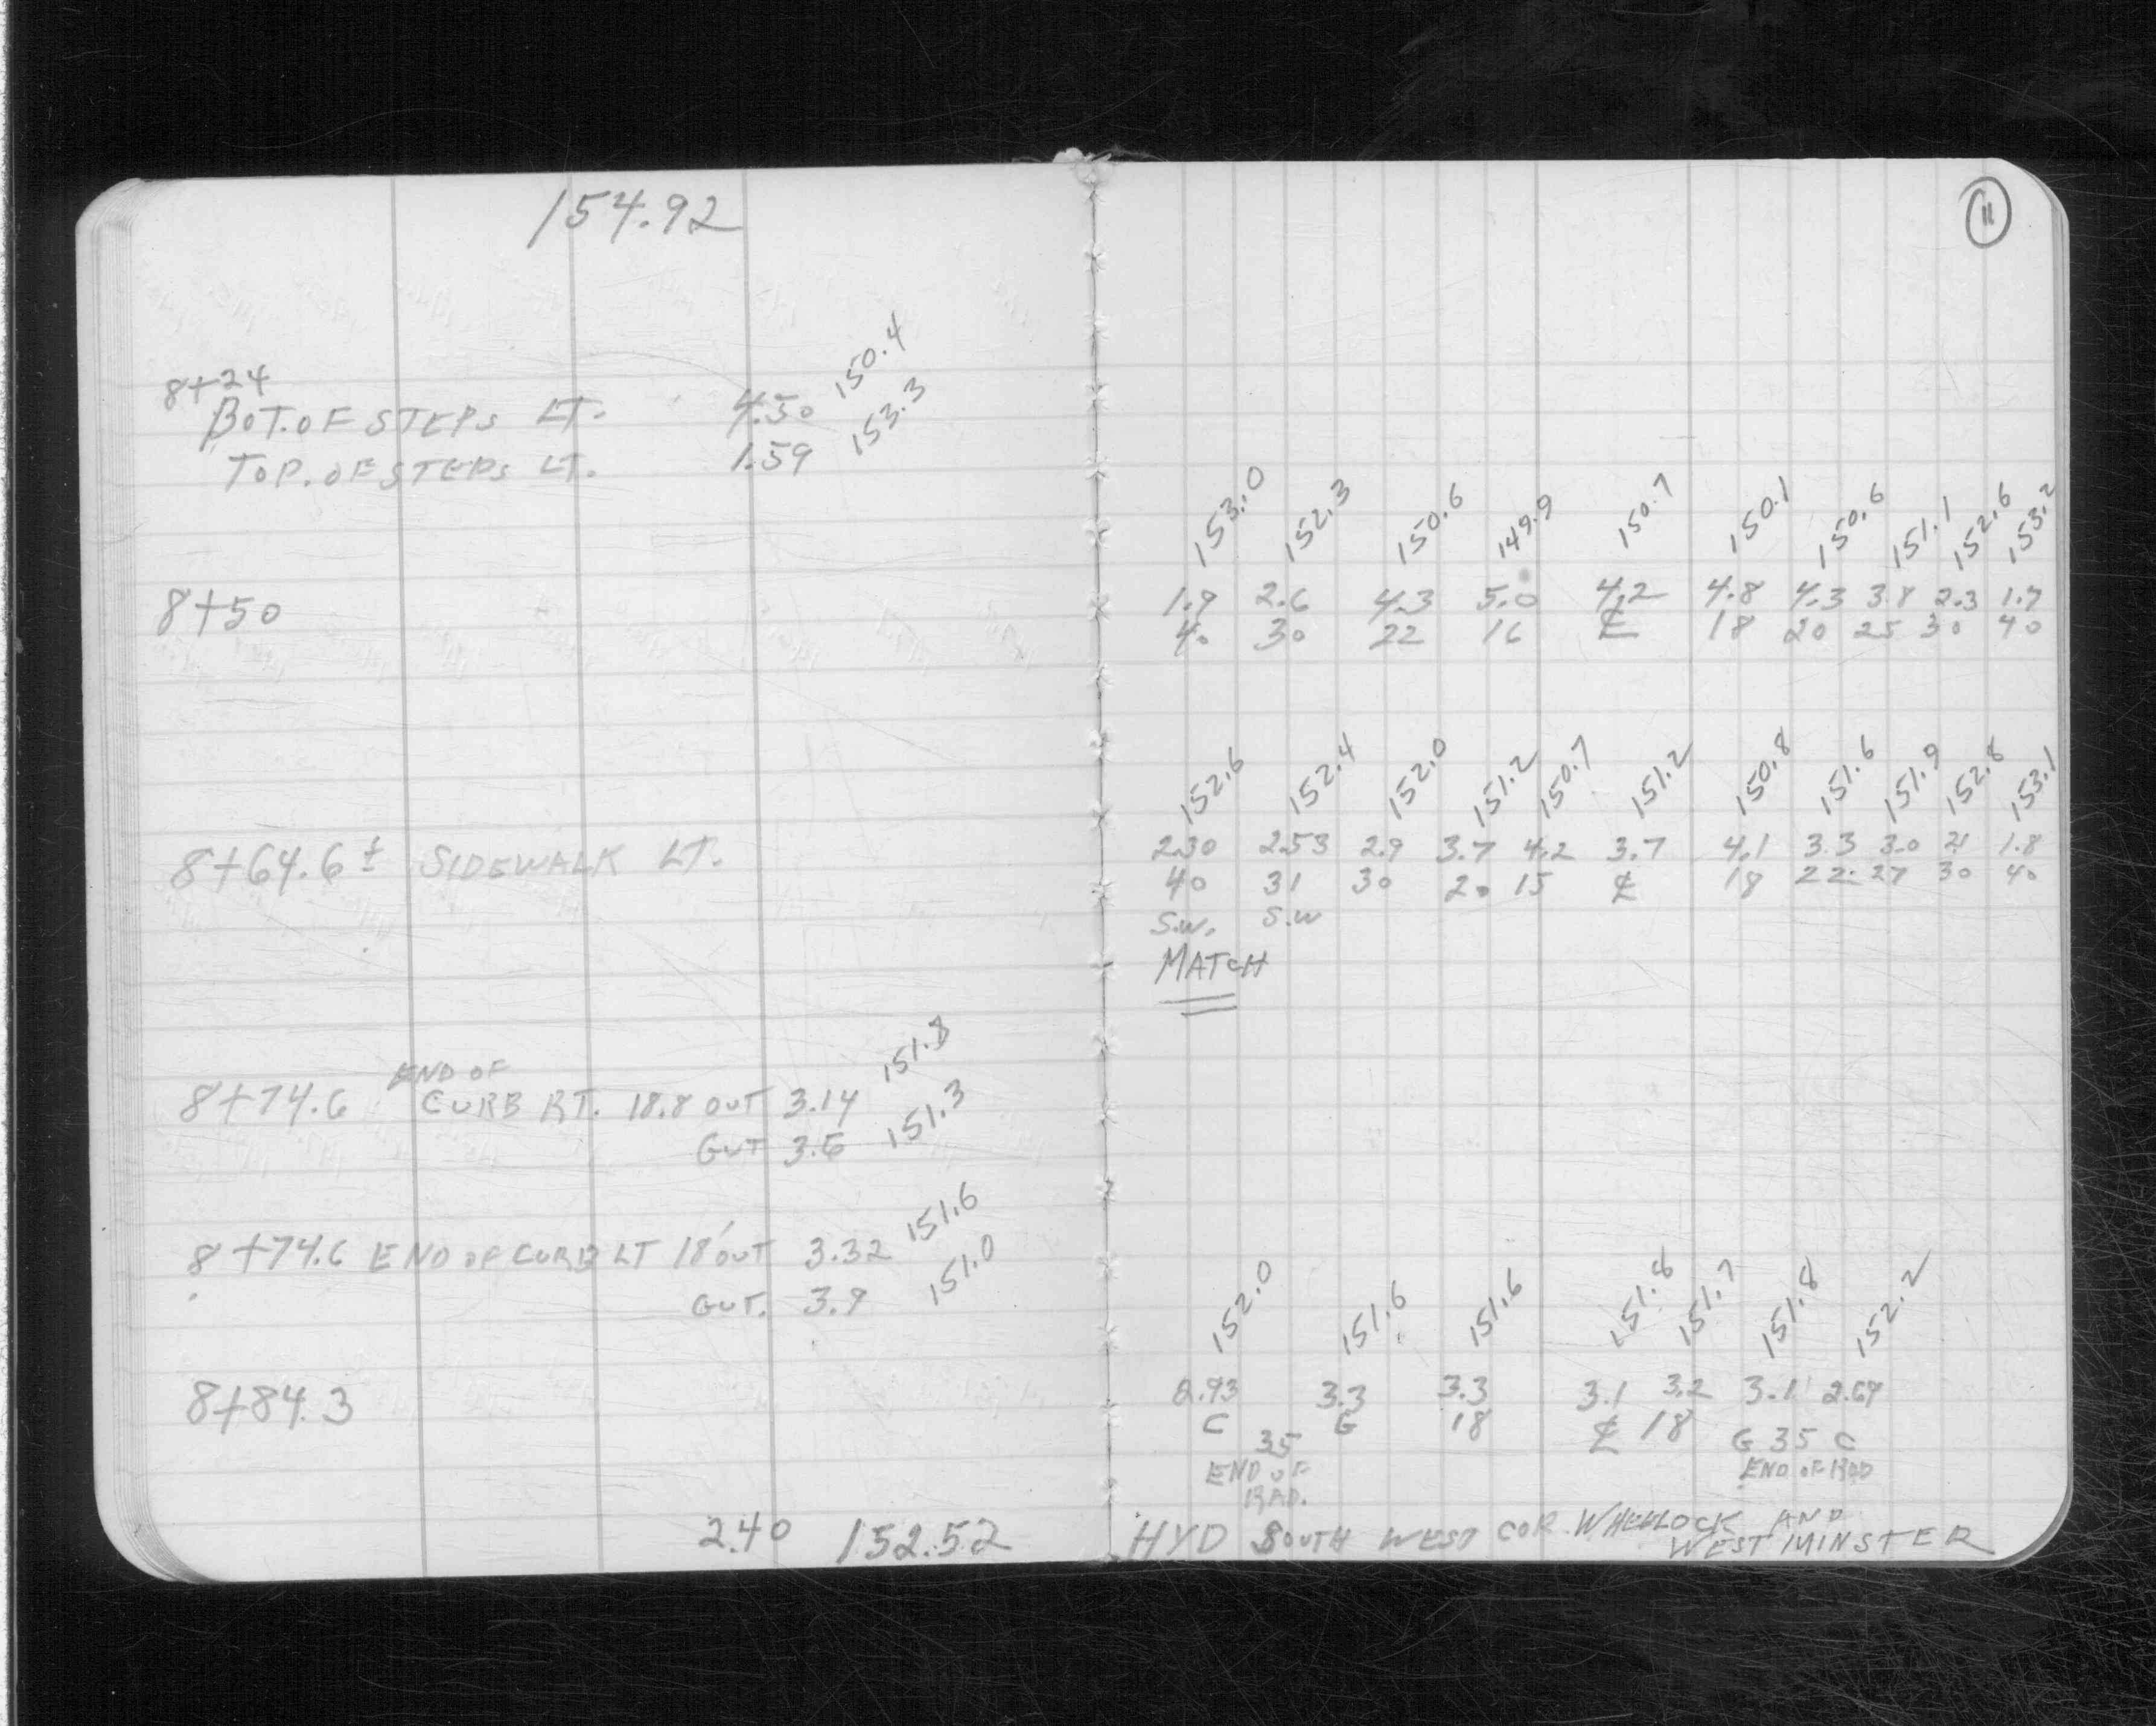 154.92
8+24
BOT. OF STEPS LT. 4.50 150.4
TOP. OF STEPS LT. 1.59 153.3
8+50
8+64.6± SIDEWALK LT.
END OF
8+74.6 CURB RT. 18.8 OUT 3.14 151.8
GUT 3.6 151.3
8+74.6 END OF CURB LT 18' OUT 3.32 151.6
GUT. 3.9 151.0
8+84.3
2.40 152.52
11
153.0 152.3 150.6 149.9 150.7 150.1 150.6 151.1 152.6 153.2
1.9 2.6 4.3 5.0 4.2 4.8 4.3 3.8 2.3 1.7
40 30 22 16 ℄ 18 20 25 30 40
152.6 152.4 152.0 151.2 150.7 151.2 150.8 151.6 151.9 152.8 153.1
2.30 2.53 2.9 3.7 4.2 3.7 4.1 3.3 3.0 21 1.8
40 31 30 20 15 ℄ 18 22 27 30 40
S.W. S.W
MATCH
152.0 151.6 151.6 151.8 151.7 151.8 152.2
2.93 3.3 3.3 3.1 3.2 3.1 2.69
C G 18 ℄ 18 G 35 C
35
END OF END OF RAD
RAD.
HYD SOUTH WEST COR. WHEELOCK AND
WESTMINSTER